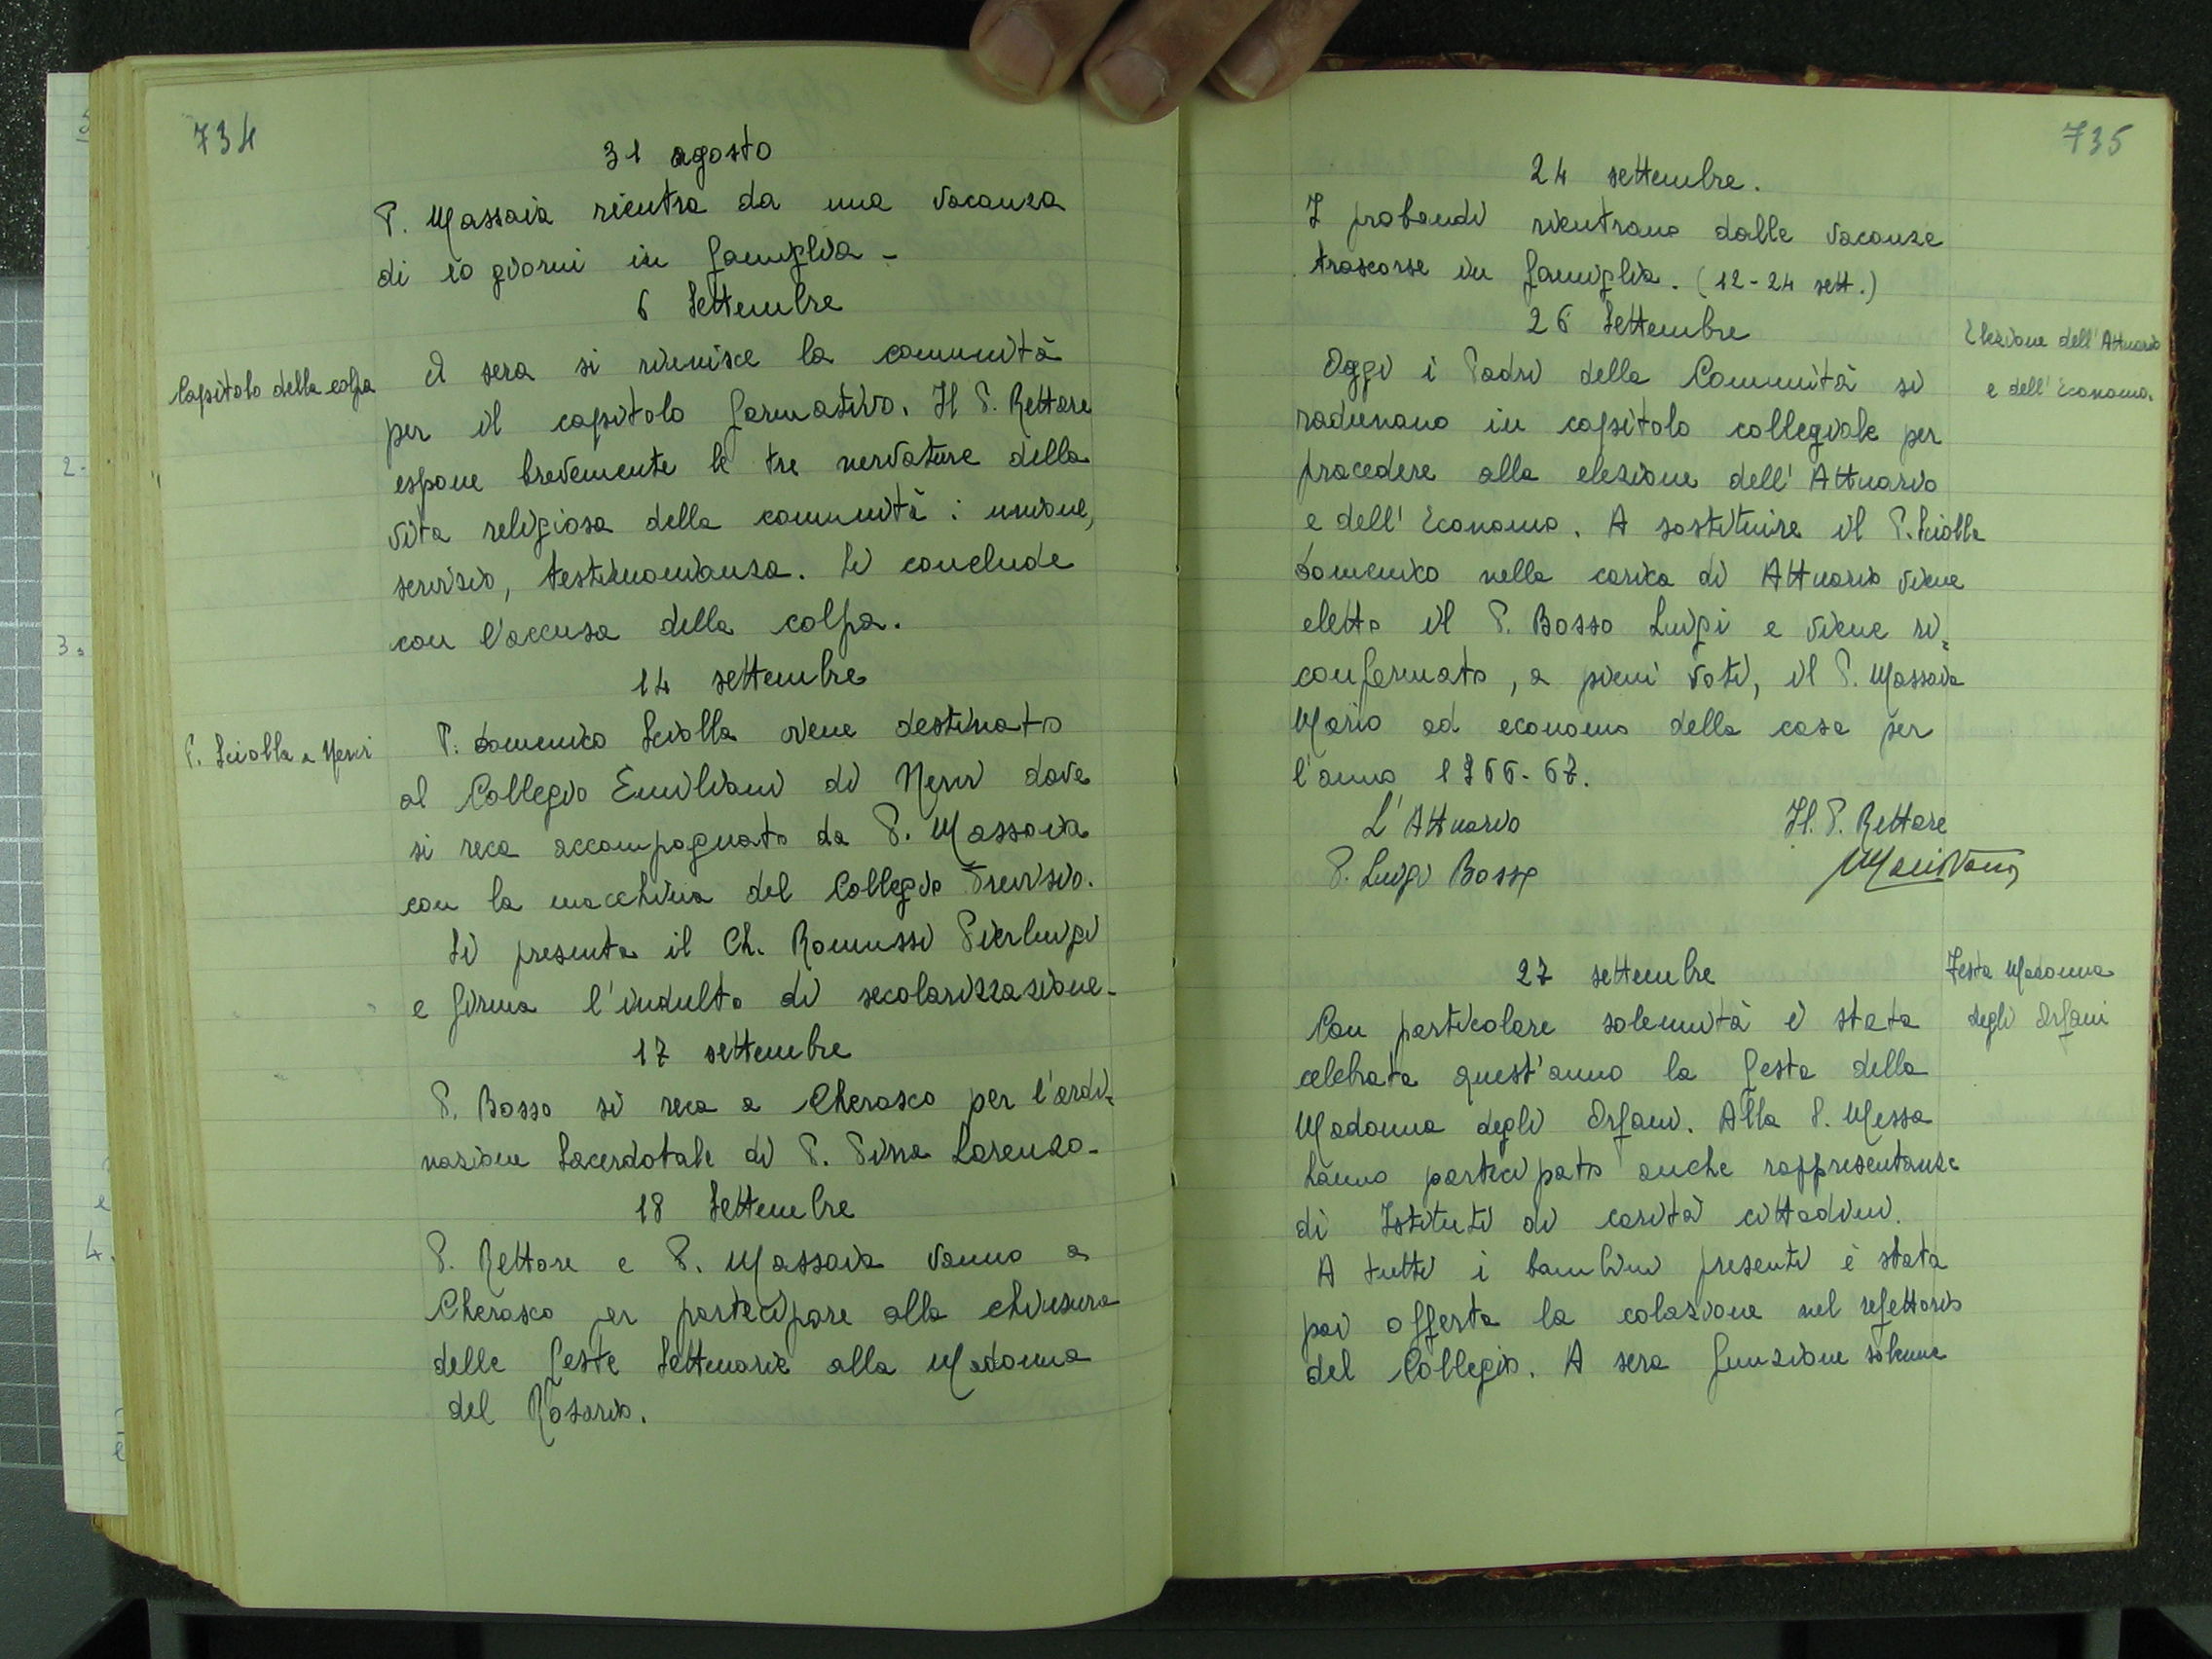 734
31 agosto
P. Massaia rientra da una vacanza
di 10 giorni in famiglia -
6 Settembre
Capitolo della colpa
A sera si riunisce la comunità
per il capitolo formativo. Il P. Rettore
espone brevemente le tre nervature della
vita religiosa della comunità : unione,
servizio, testimonianza. Si conclude
con l'accusa della colpa.
14 settembre
P. Sciolla a Nervi
P. Domenico Sciolla viene destinato
al Collegio Emiliani di Nervi dove
si reca accompagnato da P. Massaia
con la macchina del Collegio Trevisio.
Si presenta il Ch. Romussi Pierluigi
e firma l'indulto di secolarizzazione -
17 settembre
P. Bosso si reca a Cherasco per l'ordi-
nazione Sacerdotale di P. Pissa Lorenzo -
18 Settembre
P. Rettore e P. Massaia vanno a
Cherasco per partecipare alla chiusura
delle feste Settenarie alla Madonna
del Rosario.
735
24 settembre.
I probandi rientrano dalle vacanze
trascorse in famiglia. (12-24 sett.)
26 Settembre
Elezione dell'Attuario
e dell'Economo.
Oggi i Padri della Comunità si
radunano in capitolo collegiale per
procedere alla elezione dell'Attuario
e dell'Economo. A sostituire il P. Sciolla
Domenico nella carica di Attuario viene
eletto il P. Bosso Luigi e viene ri=
confermato, a pieni voti, il P. Massaia
Mario ad economo della casa per
l'anno 1966-67.
L'Attuario
Il P. Rettore
P. Luigi Bosso
27 settembre
Festa Madonna
degli Orfani
Con particolare solennità è stata
celebrata quest'anno la festa della
Madonna degli Orfani. Alla S. Messa
hanno partecipato anche rappresentanze
di Istituti di carità cittadini.
A tutti i bambini presenti è stata
poi offerta la colazione nel refettorio
del Collegio. A sera funzione solenne